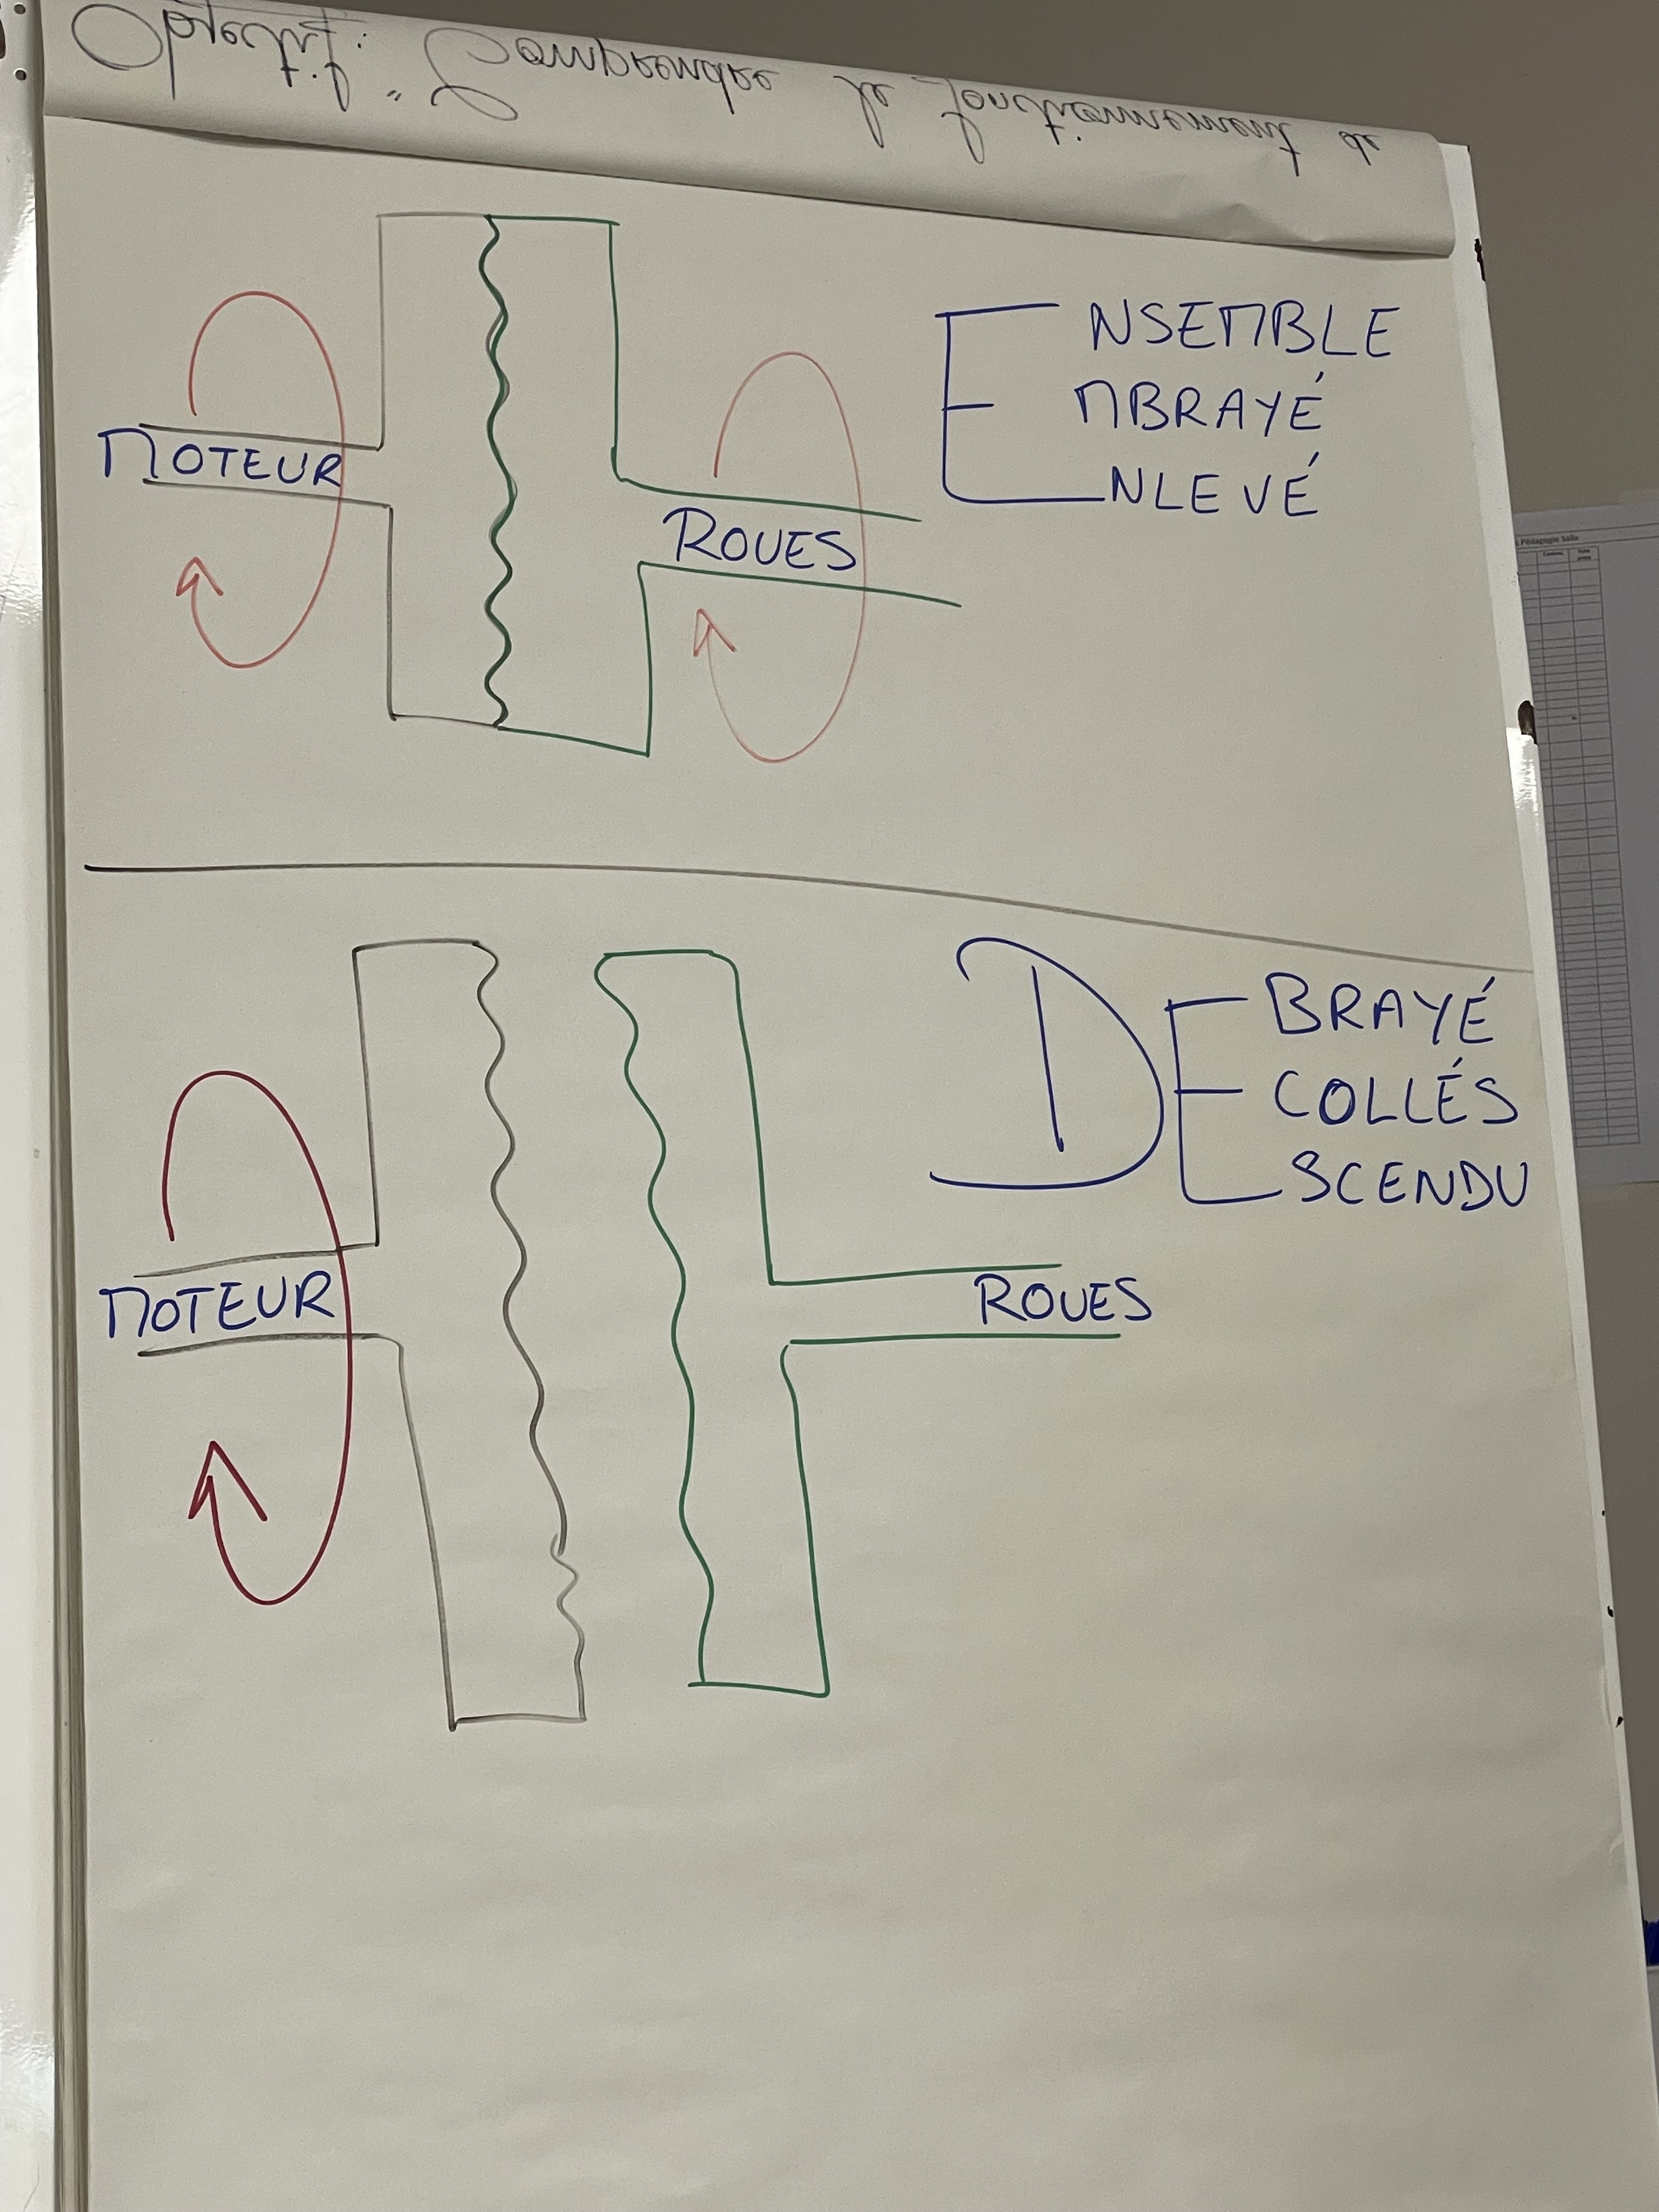 Objectif: "Comprendre le fonctionnement de
ENSEMBLE
MBRAYÉ
NLEVÉ
MOTEUR
ROUES
DEBRAYÉ
COLLÉS
SCENDU
MOTEUR
ROUES